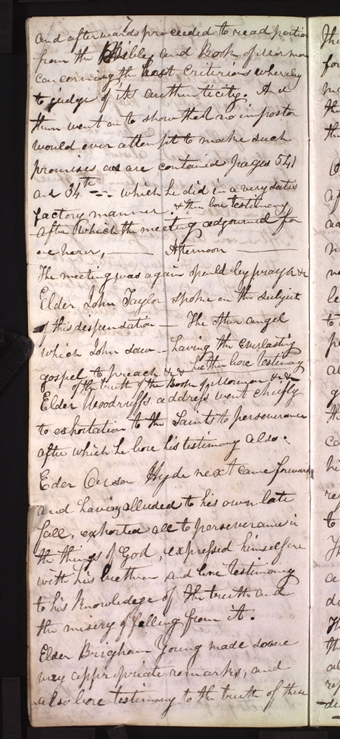 7
and afterwards proceeded to read portions
from the Bible and Book of Mormon
concerning the best criterions whereby
to judge of its authenticity. And
then went on to show that no impostor
would ever attempt to make such
promises as are contained pages 541
and 34th – – which he did in a very satis
factory manner. & then bore testimony
after which the meeting adjourned for
one hour, Afternoon
The meeting was again opened by prayer &c
Elder John Taylor spoke on the subject
of this dispensation – The other angel
which John saw – having the everlasting
gospel to preach &c &c he then bore testimony
of the truth of the Book of Mormon &c &c
Elder Woodruffs address went chiefly
to exhortation to the Saints to perseverance
after which he bore his testimony also.
Eder Orson Hyde next came forward
and having alluded to his own late
fall, exhorted all to perseverance in
the things of God, expressed himself one
with his brethren and bore testimony
to his knowledege of the truth and
the misery of falling from it.
Elder Brigham Young made some
very appropriate remarks, and
also bore testimony to the truth of these